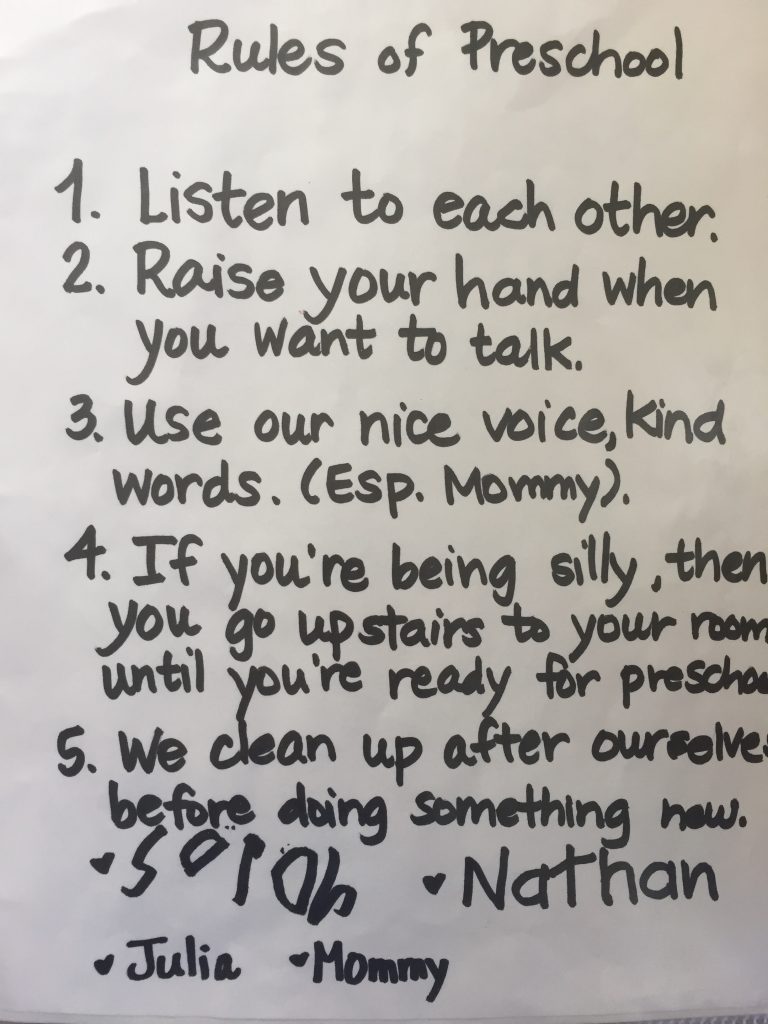 Rules of Preschool
1. Listen to each other.
2. Raise your hand when
you want to talk.
3. Use our nice voice, kind
words. (Esp. Mommy).
4. If you're being silly, then
you go upstairs to your room
until you're ready for preschoo
5. We clean up after ourselves
before doing something new.
♥ Sarah ♥ Nathan
♥ Julia ♥ Mommy